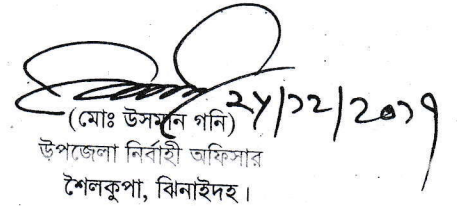 ২৮/১২/২০১৭
(মোঃ উসমান গনি)
উপজেলা নির্বাহী অফিসার
শৈলকুপা, ঝিনাইদহ।